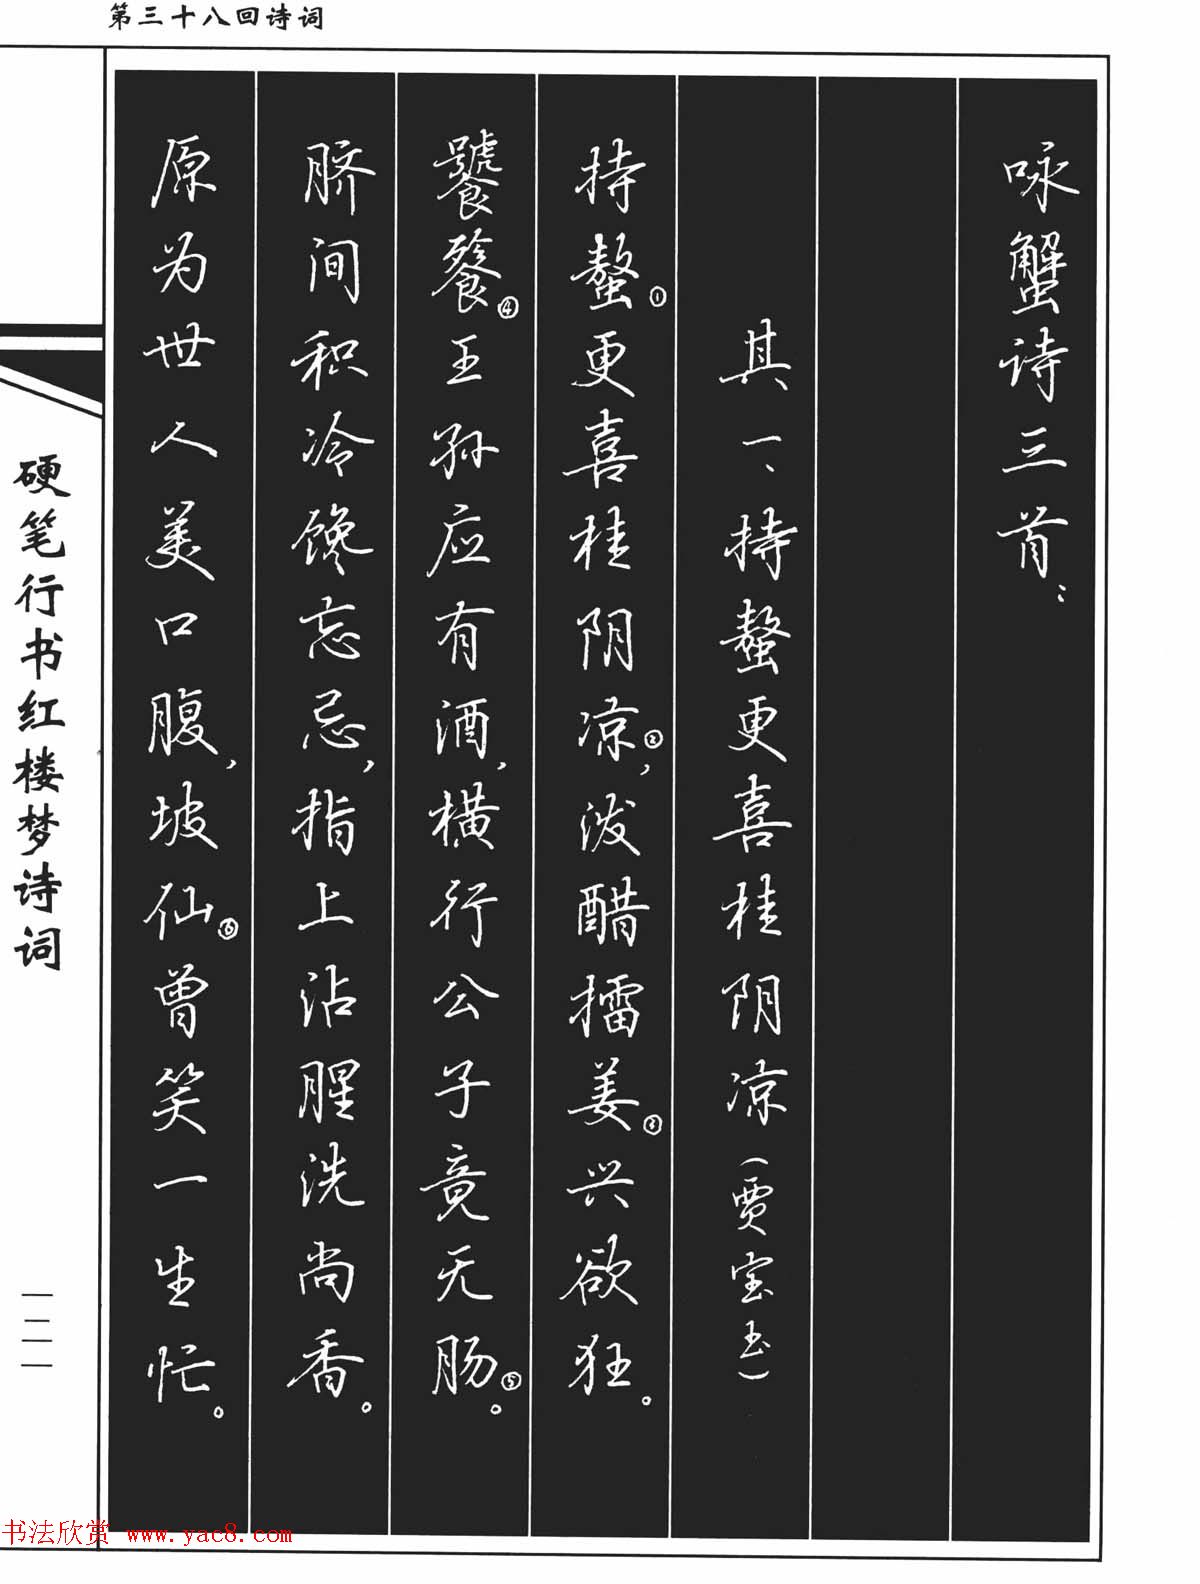 第三十八回诗词
咏蟹诗三首：
其一、持螯更喜桂阴凉（贾宝玉）
持螯①更喜桂阴凉②，泼醋擂姜③兴欲狂。
饕餮④王孙应有酒，横行公子竟无肠⑤。
脐间积冷馋忘忌，指上沾腥洗尚香。
原为世人美口腹，坡仙⑥曾笑一生忙。
硬笔行书红楼梦诗词
一一二一
书法欣赏 www.yac8.com